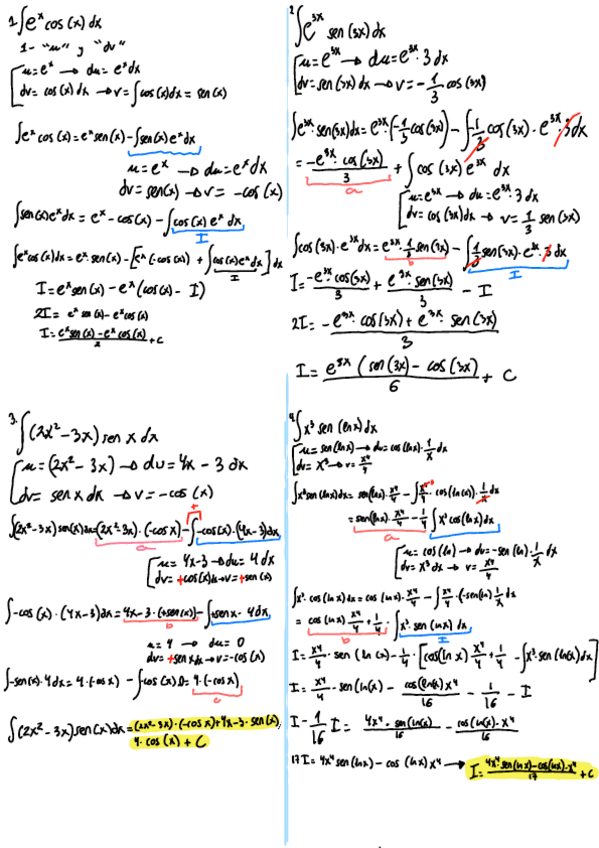 1. ∫e^x cos(x) dx
1- "u" y "dv"
u=e^x → du=e^x dx
dv= cos(x) dx → v=∫cos(x)dx = sen(x)
∫e^x cos(x) = e^x sen(x) - ∫sen(x) e^x dx
u=e^x → du=e^x dx
dv= sen(x) → v= -cos(x)
∫sen(x)e^x dx = e^x - cos(x) - ∫cos(x) e^x dx
I
∫e^x cos(x)dx = e^x · sen(x) - [e^x (-cos(x)) + ∫cos(x)e^x dx] dx
I
I = e^x sen(x) - e^x (cos(x) - I)
2I = e^x sen(x) - e^x cos(x)
I = (e^x sen(x) - e^x cos(x))/2 + C
2. ∫e^3x sen(3x)dx
u=e^3x → du=e^3x · 3dx
dv= sen(3x)dx → v= -1/3 cos(3x)
∫e^3x · sen(3x)dx = e^3x · (-1/3 cos(3x)) - ∫-1/3 cos(3x) · e^3x · 3dx
= (-e^3x · cos(3x))/3 + ∫cos(3x) e^3x dx
a
u=e^3x → du=e^3x · 3dx
dv= cos(3x)dx → v= 1/3 sen(3x)
∫cos(3x) · e^3x dx = e^3x · 1/3 sen(3x) - ∫1/3 sen(3x) · e^3x · 3dx
b I
I = (-e^3x cos(3x))/3 + (e^3x · sen(3x))/3 - I
2I = (-e^3x · cos(3x) + e^3x · sen(3x))/3
I = e^3x (sen(3x) - cos(3x))/6 + C
3. ∫(2x²-3x) sen x dx
u=(2x²-3x) → du=4x-3 dx
dv= sen x dx → v= -cos(x)
+
∫(2x²-3x) sen(x)dx = (2x²-3x) · (-cos x) - ∫-cos(x) · (4x-3)dx
a
u= 4x-3 → du= 4dx
dv= +cos(x)dx → v= +sen(x)
∫-cos(x) · (4x-3)dx = 4x-3 · (+sen(x)) - ∫+senx · 4dx
b
u=4 → du= 0
dv= +sen x dx → v= -cos(x)
∫-sen(x) · 4dx = 4 · (-cos x) - ∫-cos(x) 0 = 4 · (-cos x)
c
∫(2x²-3x) sen(x)dx = (2x²-3x) · (-cos x) + 4x-3 · sen(x)
4 · cos(x) + C
4. ∫x³ sen(ln x)dx
u= sen(ln x) → du= cos(ln x) · 1/x dx
dv= x³ → v= x⁴/4
∫x³ sen(ln x)dx = sen(ln x) · x⁴/4 - ∫x⁴/4 · cos(ln(x)) · 1/x dx
= sen(ln x) · x⁴/4 - 1/4 ∫x³ cos(ln x)dx
a
u= cos(ln) → dv= -sen(ln) · 1/x dx
dv= x³ dx → v= x⁴/4
∫x³ · cos(ln x)dx = cos(ln x) · x⁴/4 - ∫x⁴/4 · (-sen(ln) 1/x dx
= cos(ln x) x⁴/4 + 1/4 · ∫x³ · sen(ln x) dx
b I
I = x⁴/4 · sen(ln x) - 1/4 · [cos(ln x) x⁴/4 + 1/4 - ∫x³ · sen(ln(x)dx]
I = x⁴/4 · sen(ln x) - (cos(ln x) x⁴)/16 - 1/16 - I
I - 1/16 I = (4x⁴ - sen(ln x))/16 - (cos(ln x) · x⁴)/16
17I = 4x⁴ sen(ln x) - cos(ln x) x⁴ → I = (4x⁴ sen(ln x) - cos(ln x) · x⁴)/17 + C